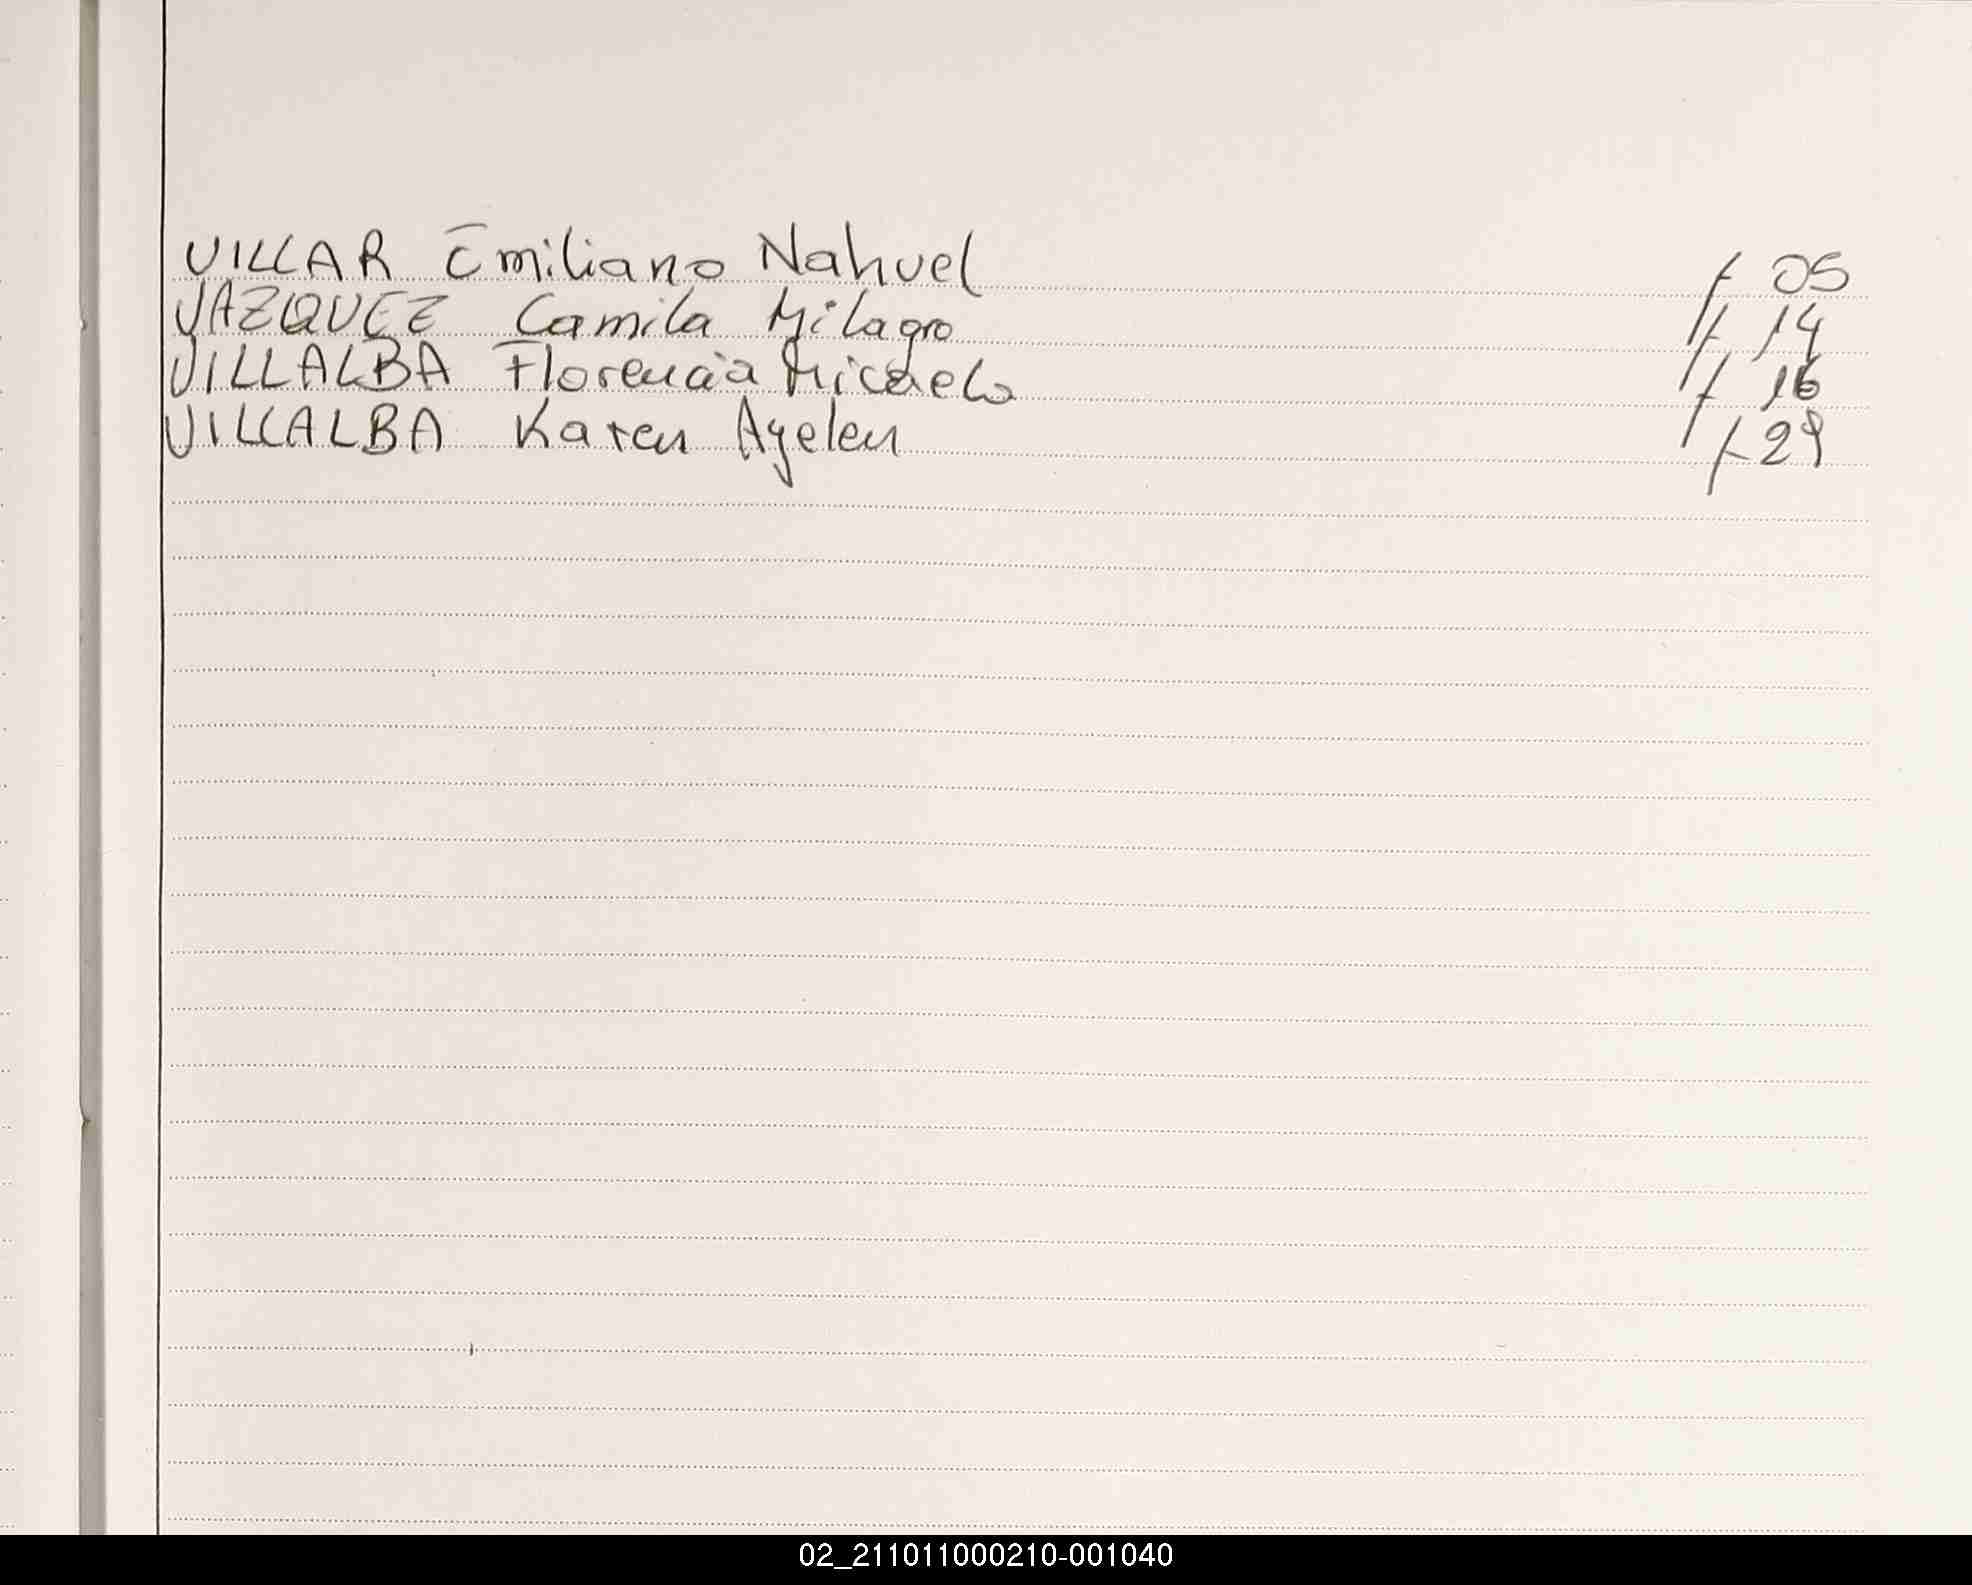 VILLAR Emiliano Nahuel f 05
VAZQUEZ Camila Milagro f 14
VILLALBA Florencia Micaela f 16
VILLALBA Karen Ayelen f 29
02_211011000210-001040